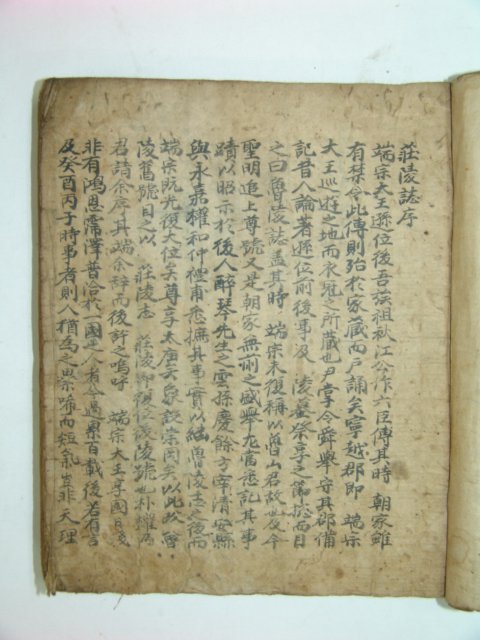 莊陵誌序
端宗大王遜位後吾族祖秋江公作六臣傳其時 朝家雖
有禁令此傳則殆於家藏而戶誦矣寧越郡即 端宗
大王巡遊之地而衣冠之所藏也尹掌令舜擧守其郡備
記昔人論著遜位前後事及 陵墓祭享之節捴而目
之曰魯陵誌盖其時 端宗未復稱以魯山君故也及今
聖明追上尊號又是朝家無前之盛擧尤當悉記其事
蹟以昭示於後人醉琴先生之雲孫慶餘方宰淸安縣
與永嘉權和仲禮甫悉摭其事實以繼魯陵志之後而
端宗旣光復大位矣尊享太廟矣象設崇固矣以此故魯
陵舊號目之以 莊陵志 莊陵即復位後陵號也朴權兩
君請余序其端余辞而後許之嗚呼 端宗大王享國日淺
非有鴻恩霈澤普洽於國人者今過累百載後若有言
及癸酉丙子時事者則人猶爲之累唏而短氣豈非天理